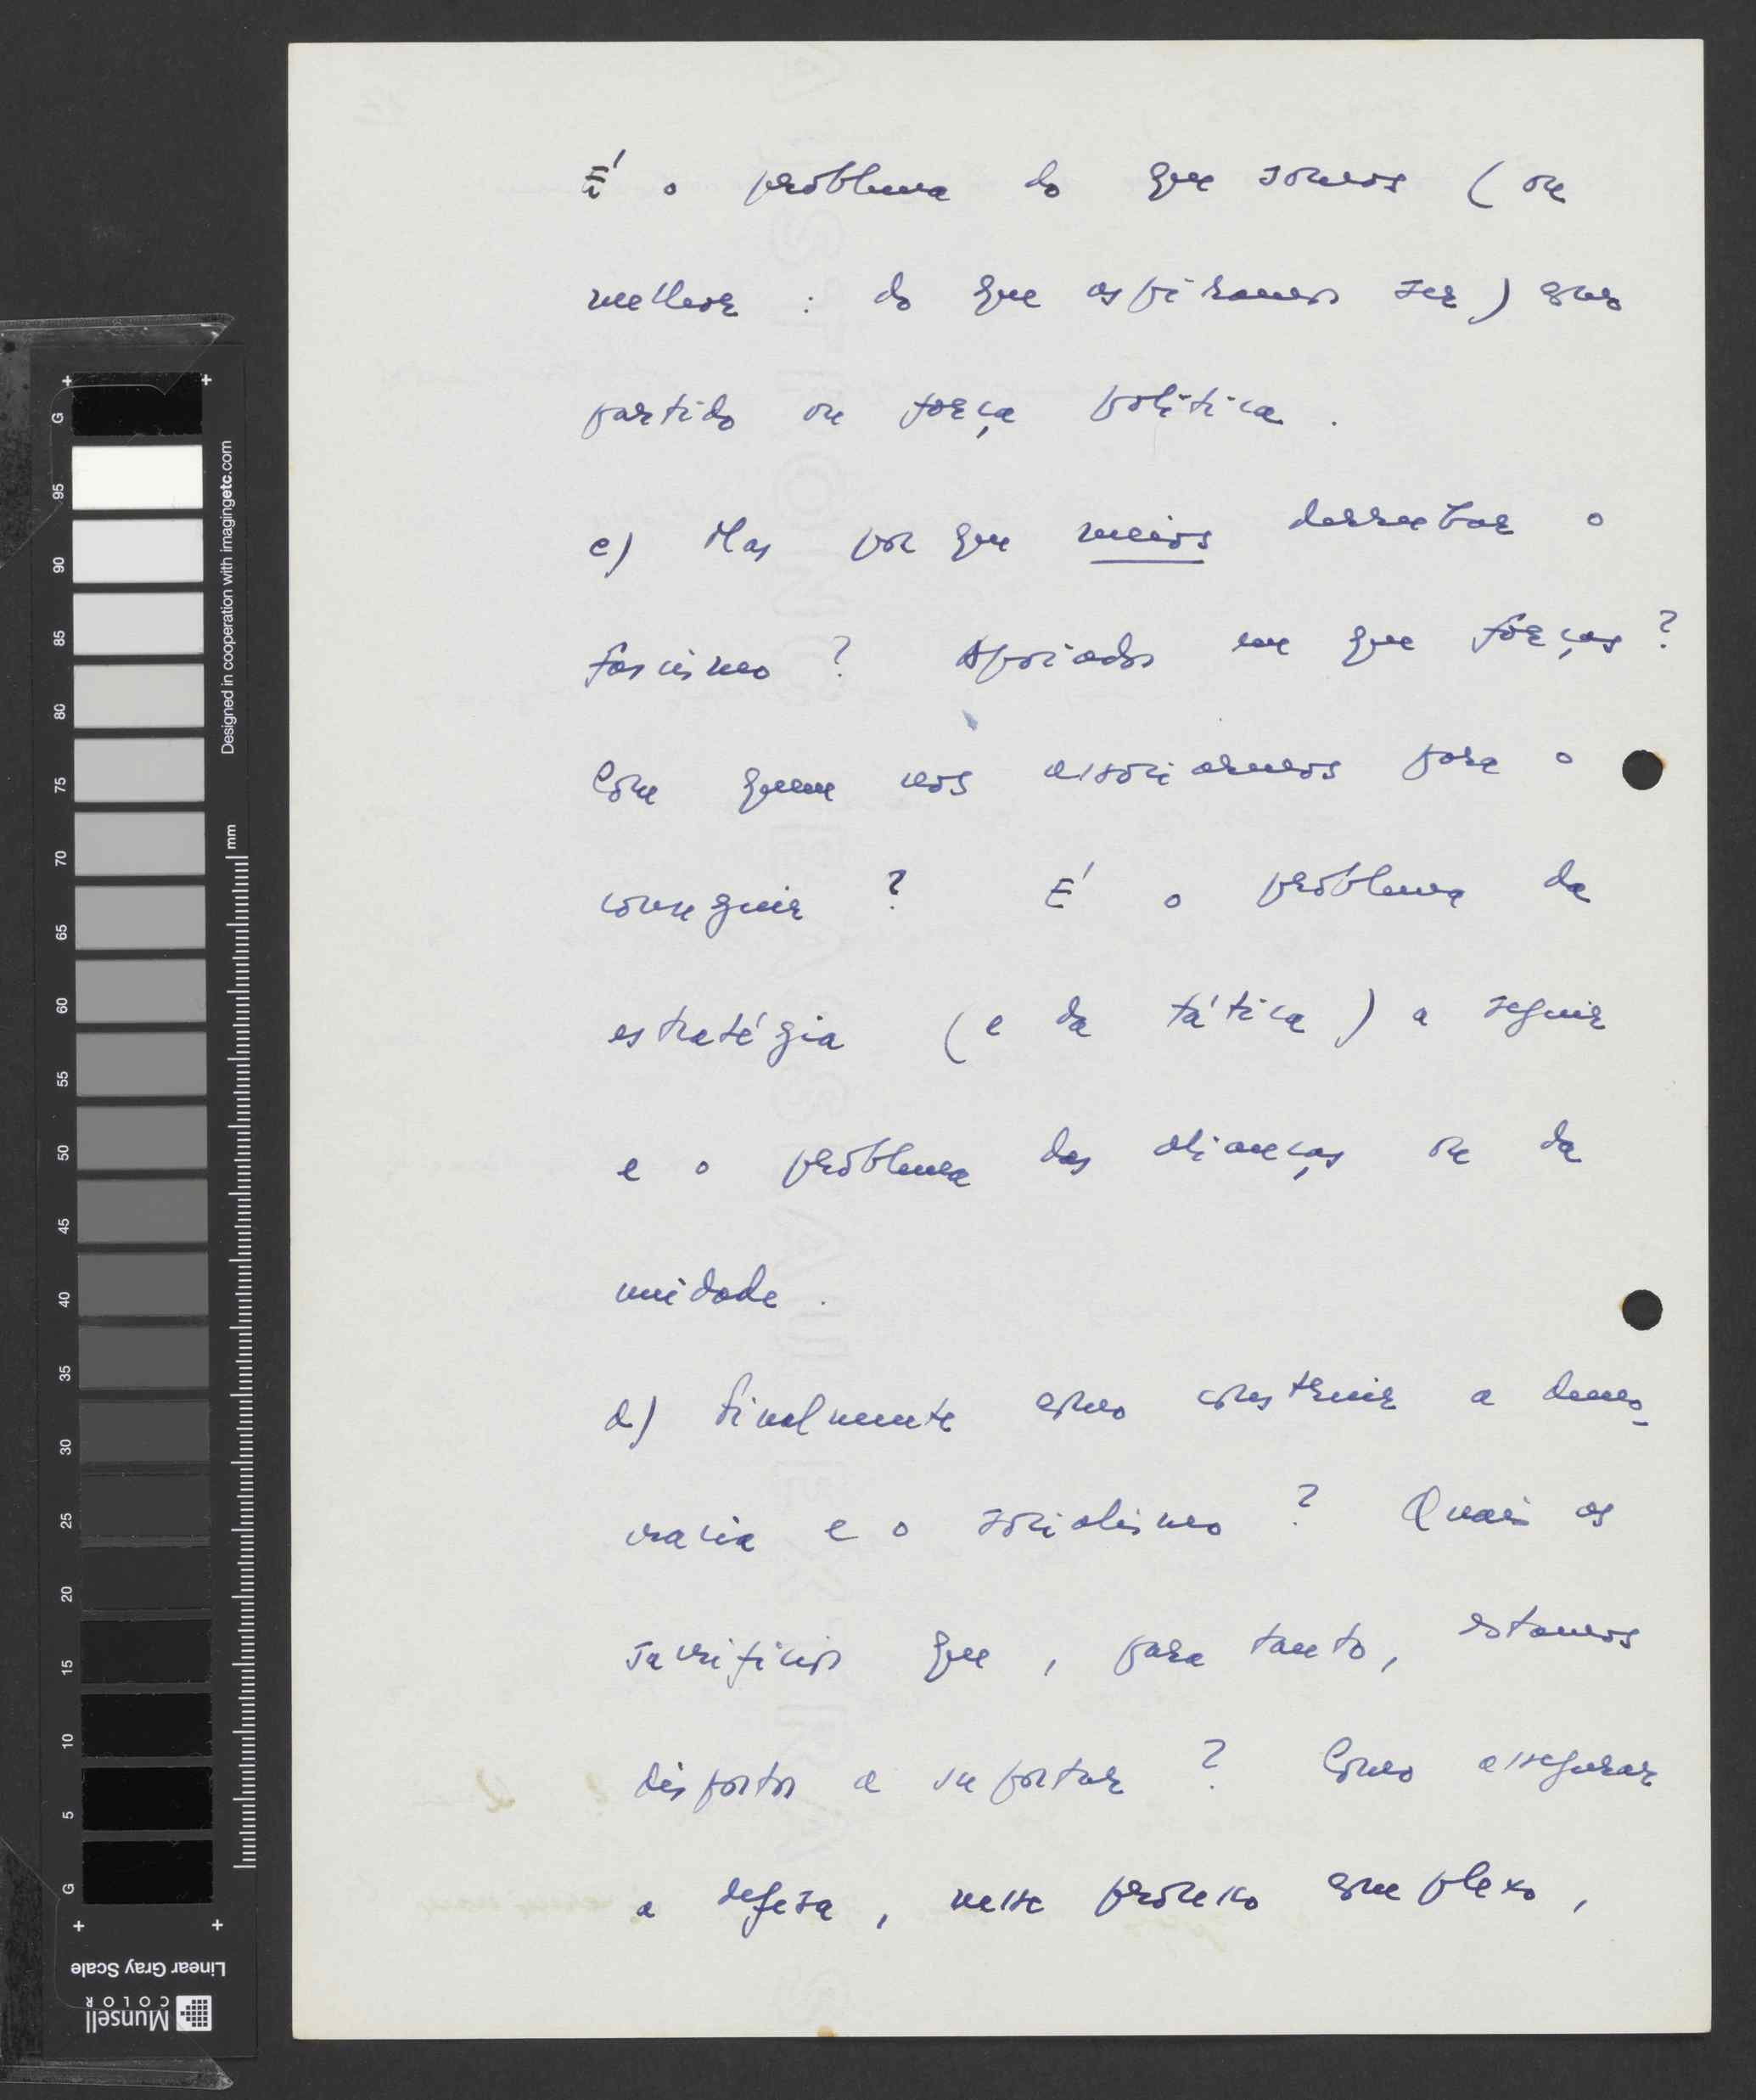 É o problema do que somos (ou
melhor : do que aspiramos ser) como
partido ou força política .
c) Mas por que meios derrubar o
fascismo ? Apoiados em que forças ?
Com quem nos associarmos para o
conseguir ? É o problema da
estratégia (e da tática) a seguir
e o problema das alianças ou da
unidade .
d) Finalmente como construir a demo-
cracia e o socialismo ? Quais os
sacrifícios que , para tanto, estamos
dispostos a suportar ? Como assegurar
a defesa , nesse processo complexo ,
G 95 90 85 80 75 70 65 60 55 50 45 40 35 30 25 20 15 10 5 G
mm
Designed in cooperation with imagingetc.com
Linear Gray Scale
Munsell
COLOR